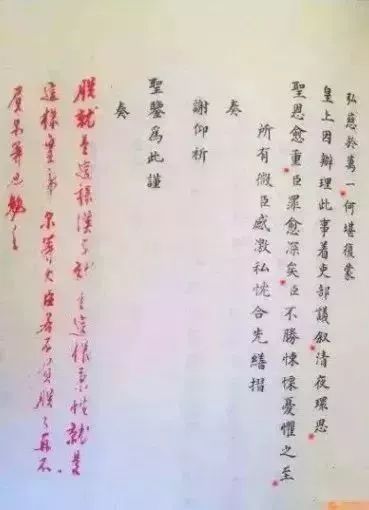 弘慈於萬一何堪復蒙
皇上因辦理此事着吏部議叙清夜環思
聖恩愈重臣罪愈深矣臣不勝悚懍憂懼之至
所有微臣感激私忱合先繕摺
奏
謝仰祈
聖鑒爲此謹
奏
朕就是這樣漢子就是這樣秉性就是
這樣皇帝尔等大臣若不負朕朕再不
負尔等也勉之